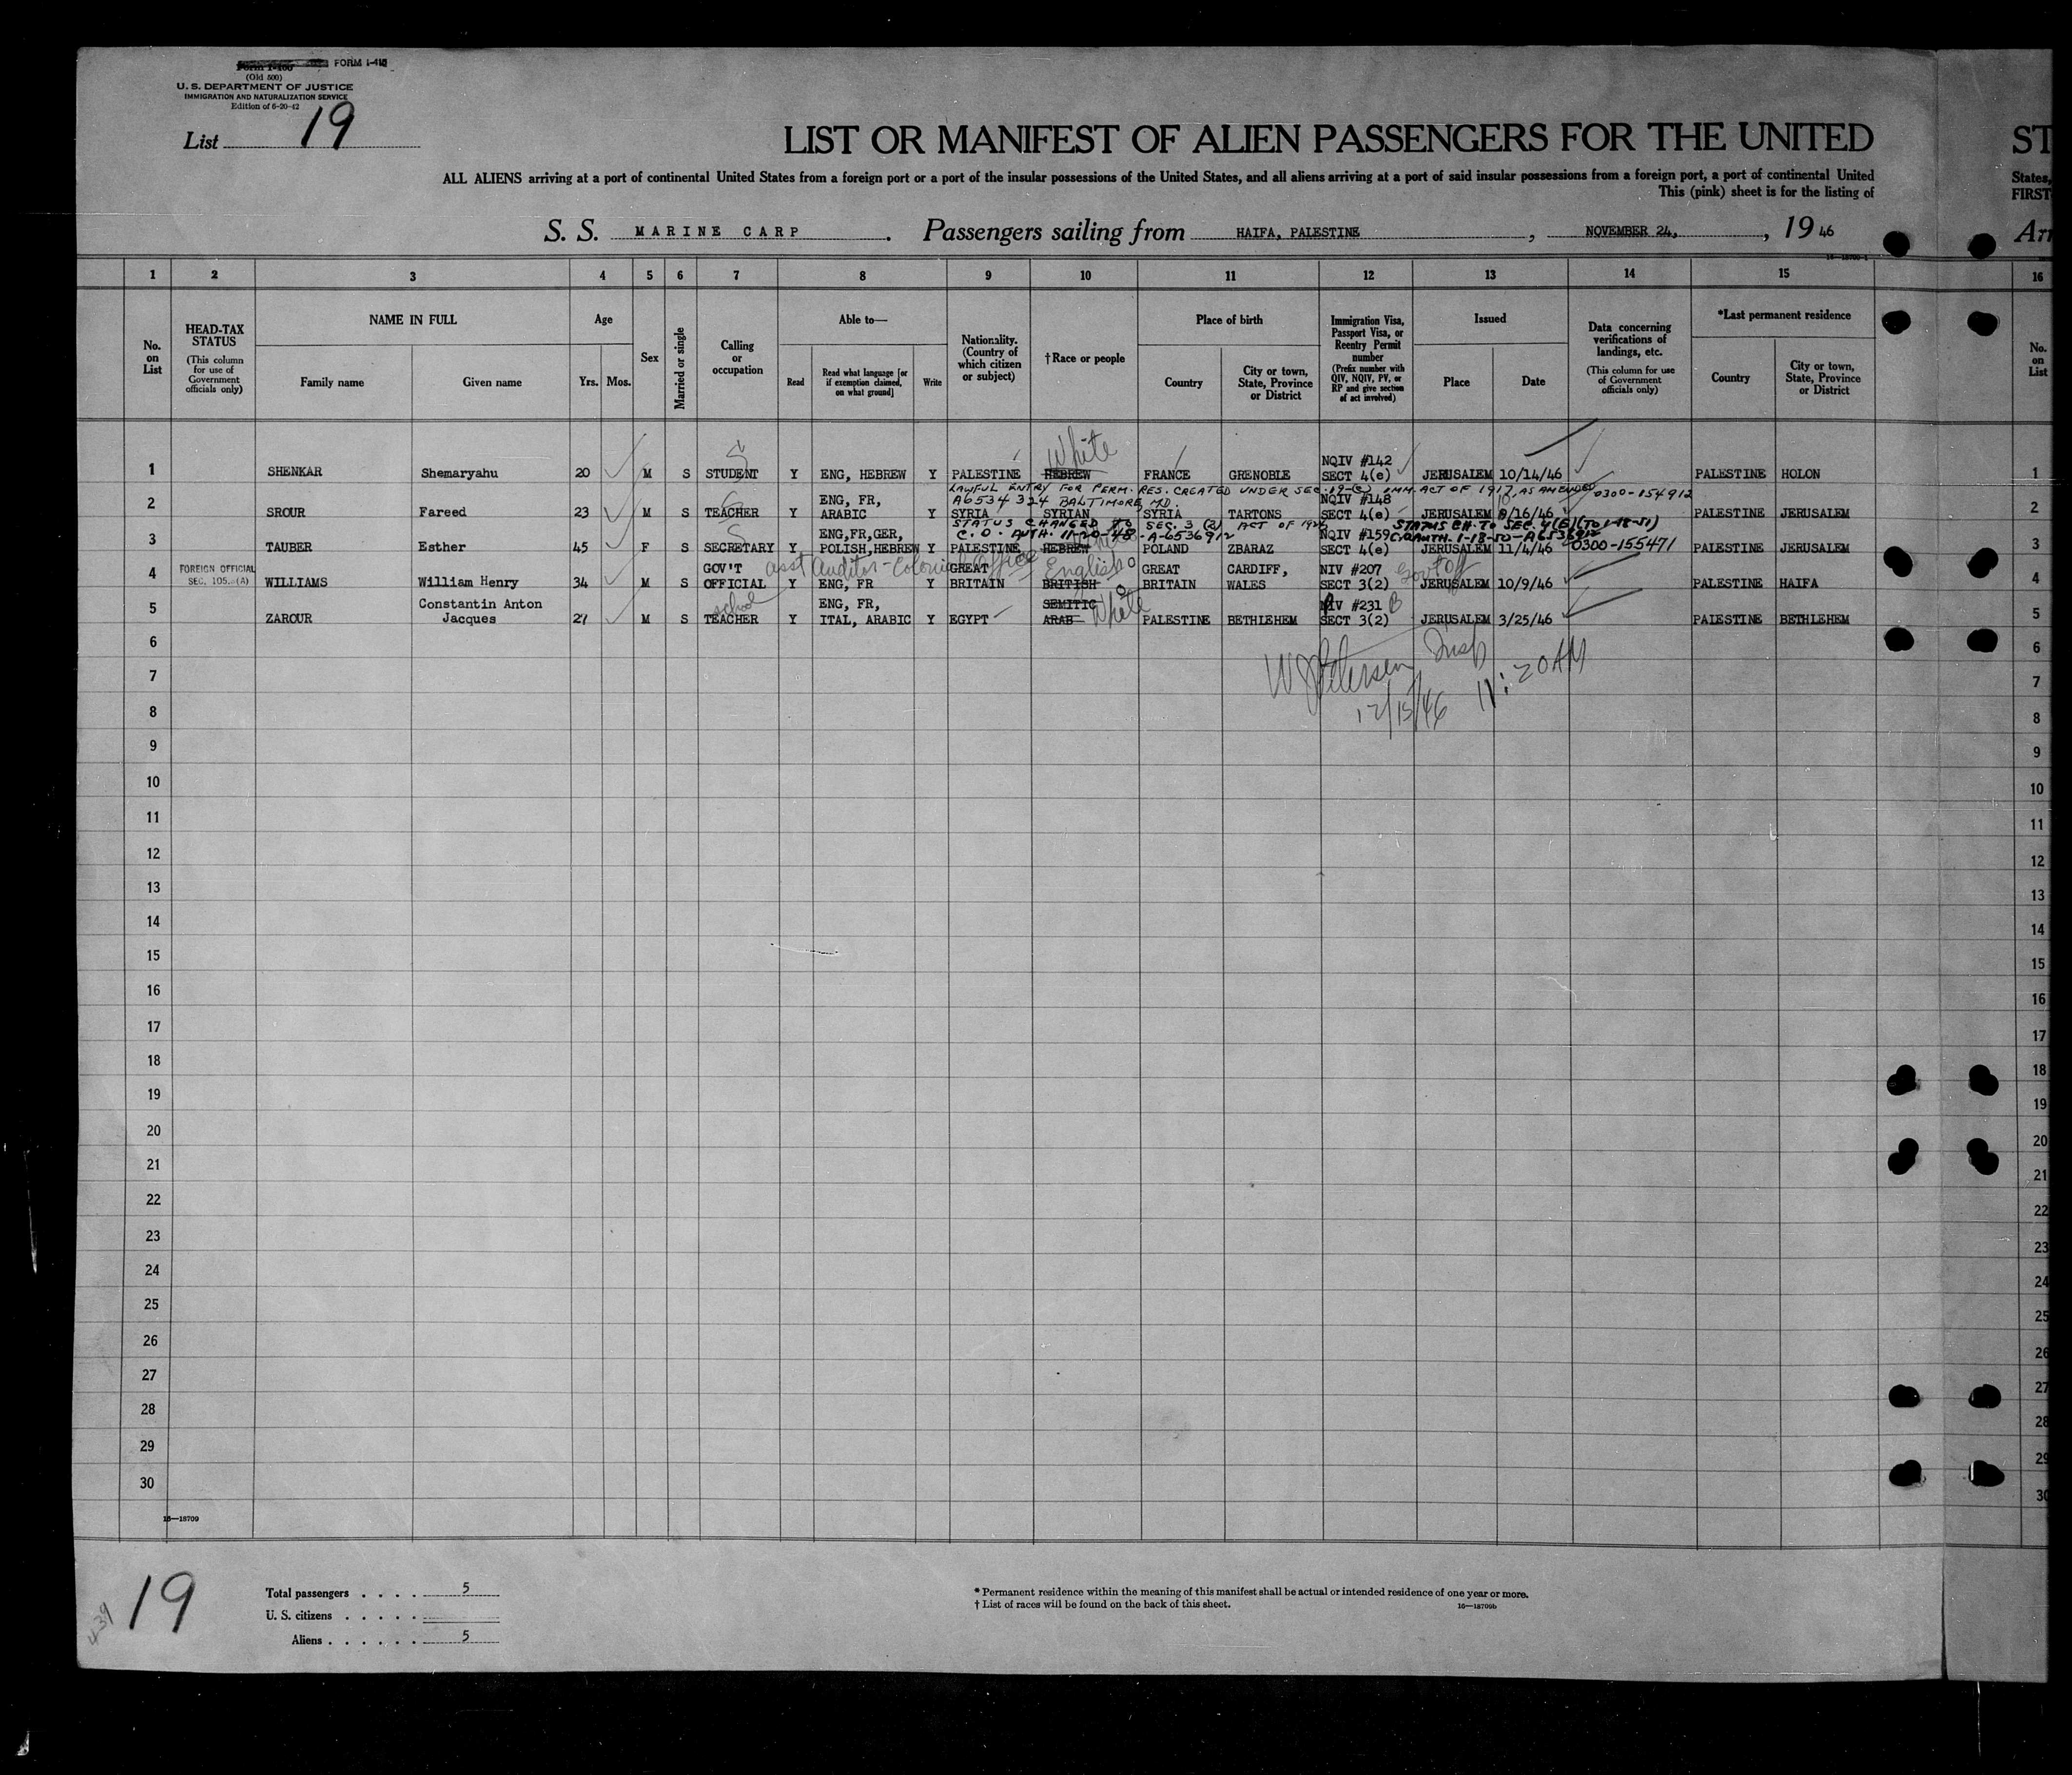 FORM I-415
(Old 500)
U. S. DEPARTMENT OF JUSTICE
IMMIGRATION AND NATURALIZATION SERVICE
Edition of 6-20-42
List 19
LIST OR MANIFEST OF ALIEN PASSENGERS FOR THE UNITED
ST
ALL ALIENS arriving at a port of continental United States from a foreign port or a port of the insular possessions of the United States, and all aliens arriving at a port of said insular possessions from a foreign port, a port of continental United
States,
This (pink) sheet is for the listing of
FIRST
S. S. MARINE CARP. Passengers sailing from HAIFA, PALESTINE, NOVEMBER 24,, 19 46
Arr
1 2 3 4 5 6 7 8 9 10 11 12 13 14 15 16
No. on List
HEAD-TAX STATUS (This column for use of Government officials only)
NAME IN FULL
Family name Given name
Age
Yrs. Mos.
Sex
Married or single
Calling or occupation
Able to—
Read
Read what language [or if exemption claimed, on what ground]
Write
Nationality. (Country of which citizen or subject)
†Race or people
Place of birth
Country
City or town, State, Province or District
Immigration Visa, Passport Visa, or Reentry Permit number (Prefix number with QIV, NQIV, PV, or RP and give section of act involved)
Issued
Place Date
Data concerning verifications of landings, etc. (This column for use of Government officials only)
*Last permanent residence
Country
City or town, State, Province or District
No. on List
S White
1 SHENKAR Shemaryahu 20 M S STUDENT Y ENG, HEBREW Y PALESTINE HEBREW FRANCE GRENOBLE NQIV #142 SECT 4(e) JERUSALEM 10/14/46 PALESTINE HOLON 1
LAWFUL ENTRY FOR PERM. RES. CREATED UNDER SEC. 19-(c) IMM. ACT OF 1917, AS AMENDED
A6534324 BALTIMORE, MD. 0300-154912
2 SROUR Fareed 23 M S TEACHER Y ENG, FR, ARABIC Y SYRIA SYRIAN SYRIA TARTONS NQIV #148 SECT 4(e) JERUSALEM /16/46 PALESTINE JERUSALEM 2
STATUS CHANGED TO SEC. 3 (2) ACT OF 1924 STATUS CH. TO SEC. 4(E) (TO 1-18-51)
C.O. AUTH. 11-20-48 - A-6536912 C.O. AUTH. 1-18-50-A6536912
3 TAUBER Esther 45 F S SECRETARY Y ENG,FR,GER, POLISH,HEBREW Y PALESTINE HEBREW POLAND ZBARAZ NQIV #159 SECT 4(e) JERUSALEM 11/4/46 0300-155471 PALESTINE JERUSALEM 3
asst Auditor-Colonial Office English Gov't Off
4 FOREIGN OFFICIAL SEC. 105. (A) WILLIAMS William Henry 34 M S GOV'T OFFICIAL Y ENG, FR Y GREAT BRITAIN BRITISH GREAT BRITAIN CARDIFF, WALES NIV #207 SECT 3(2) JERUSALEM 10/9/46 PALESTINE HAIFA 4
school White B
5 ZAROUR Constantin Anton Jacques 27 M S TEACHER Y ENG, FR, ITAL, ARABIC Y EGYPT SEMITIC ARAB PALESTINE BETHLEHEM NIV #231 SECT 3(2) JERUSALEM 3/25/46 PALESTINE BETHLEHEM 5
W J Petersen Insp
12/15/46 11:20 AM
6 6
7 7
8 8
9 9
10 10
11 11
12 12
13 13
14 14
15 15
16 16
17 17
18 18
19 19
20 20
21 21
22 22
23 23
24 24
25 25
26 26
27 27
28 28
29 29
30 30
16—18709
439
19
Total passengers . . . . 5
U. S. citizens . . . . .
Aliens . . . . . . 5
* Permanent residence within the meaning of this manifest shall be actual or intended residence of one year or more.
† List of races will be found on the back of this sheet.
16—18709b